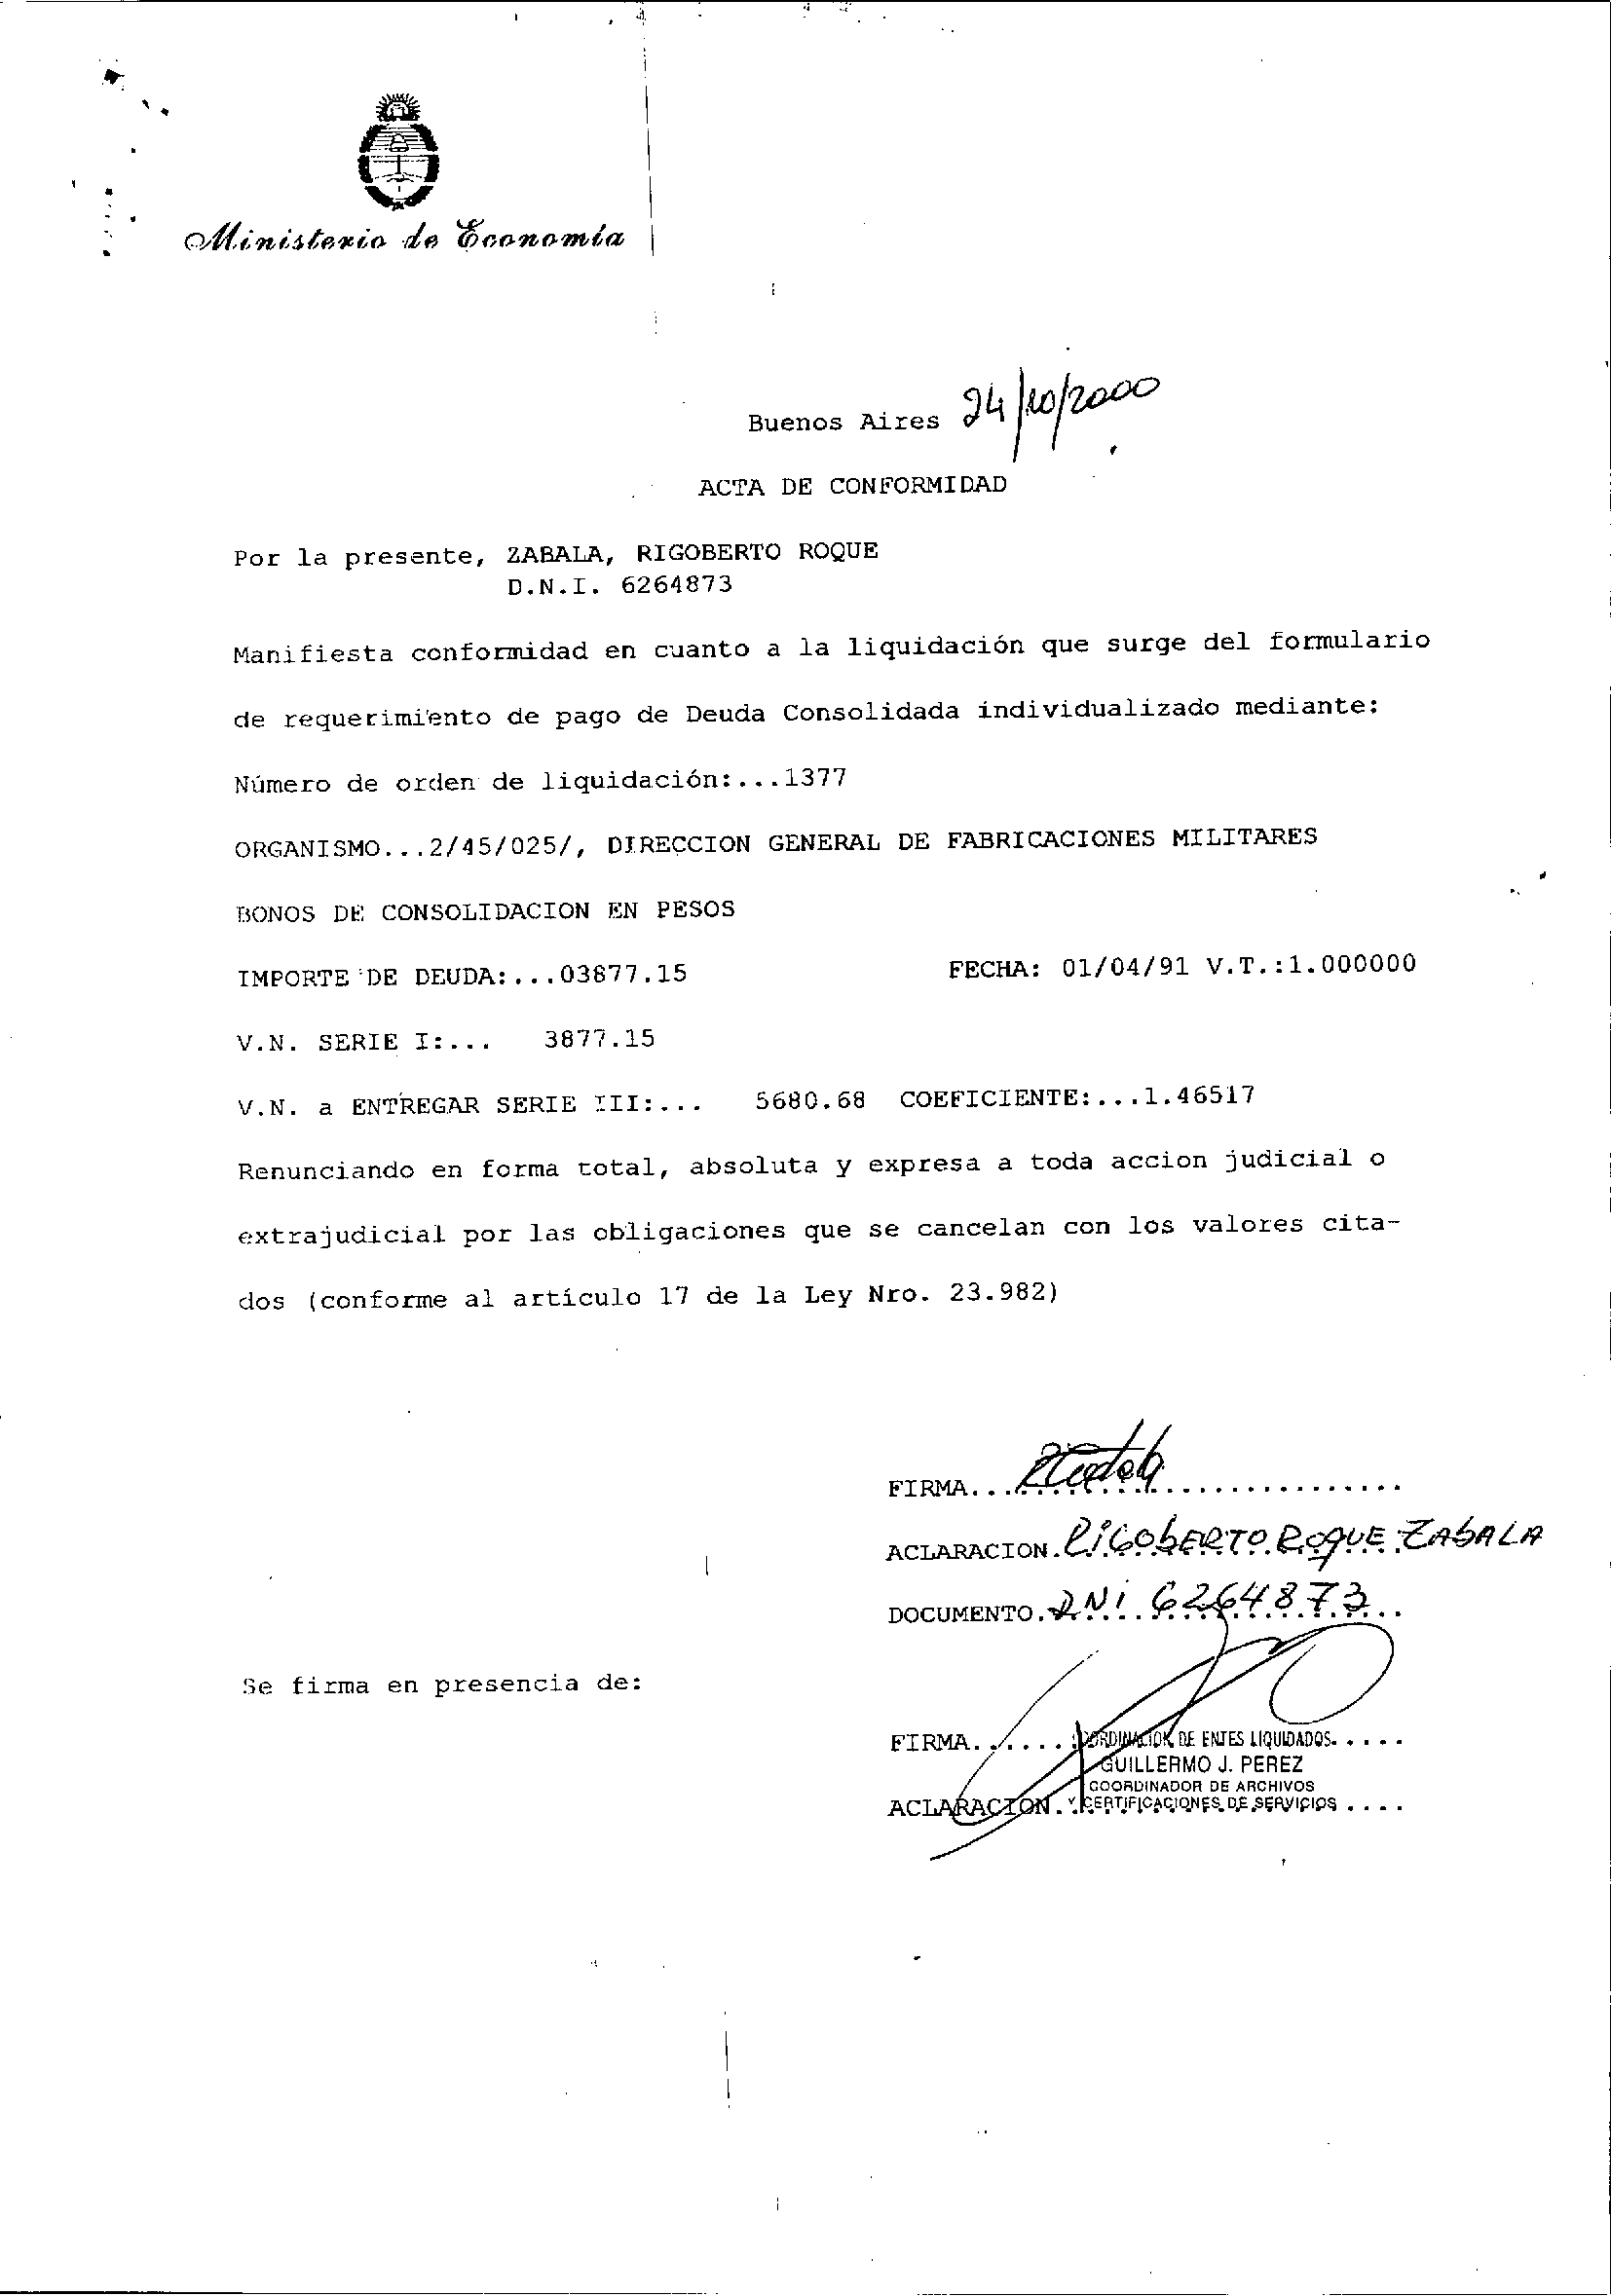 Ministerio de Economía
Buenos Aires 24/10/2000
ACTA DE CONFORMIDAD
Por la presente, ZABALA, RIGOBERTO ROQUE
D.N.I. 6264873
Manifiesta conformidad en cuanto a la liquidación que surge del formulario
de requerimiento de pago de Deuda Consolidada individualizado mediante:
Número de orden de liquidación:...1377
ORGANISMO...2/45/025/, DIRECCION GENERAL DE FABRICACIONES MILITARES
BONOS DE CONSOLIDACION EN PESOS
IMPORTE DE DEUDA:...03877.15 FECHA: 01/04/91 V.T.:1.000000
V.N. SERIE I:... 3877.15
V.N. a ENTREGAR SERIE III:... 5680.68 COEFICIENTE:...1.46517
Renunciando en forma total, absoluta y expresa a toda accion judicial o
extrajudicial por las obligaciones que se cancelan con los valores cita-
dos (conforme al artículo 17 de la Ley Nro. 23.982)
FIRMA...
ACLARACION. RIGOBERTO ROQUE ZABALA
DOCUMENTO. DNI 6264873
Se firma en presencia de:
FIRMA....... COORDINACION DE ENTES LIQUIDADOS.....
GUILLERMO J. PEREZ
COORDINADOR DE ARCHIVOS
ACLARACION. Y CERTIFICACIONES DE SERVICIOS ....